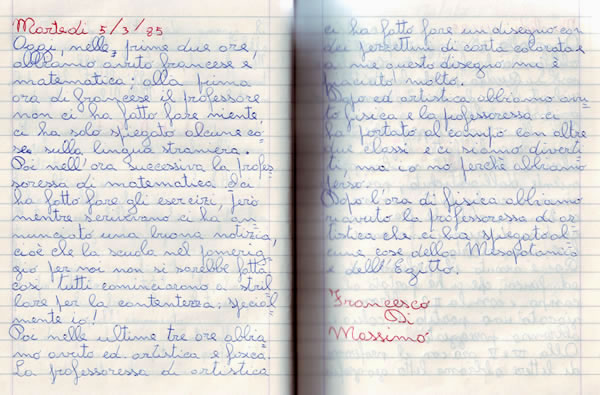 Martedì 5/3/85
Oggi, nelle prime due ore,
abbiamo avuto francese e
matematica; alla prima
ora di francese il professore
non ci ha fatto fare niente,
ci ha solo spiegato alcune co=
se sulla lingua straniera.
Poi nell'ora successiva la profes=
soressa di matematica ci
ha fatto fare gli esercizi, però
mentre scrivevano ci ha an=
nunciato una buona notizia,
cioè che la scuola nel pomerig=
gio per noi non si sarebbe fatta
così tutti cominciarono a stril=
lare per la contentezza, special=
mente io!
Poi nelle ultime tre ore abbia=
mo avuto ed. artistica e fisica.
La professoressa di artistica
ci ha fatto fare un disegno con
dei pezzettini di carta colorata e
a me questo disegno mi è
piaciuto molto.
Dopo ed. artistica abbiamo avu=
to fisica e la professoressa ci
ha portato al campo con altre
due classi e ci siamo diverti=
ti, ma io no perchè abbiamo
perso.
Dopo l'ora di fisica abbiamo
riavuto la professoressa di ar=
tistica che ci ha spiegato al=
cune cose della Mesopotamia
e dell'Egitto.
Francesco
Di
Massimo